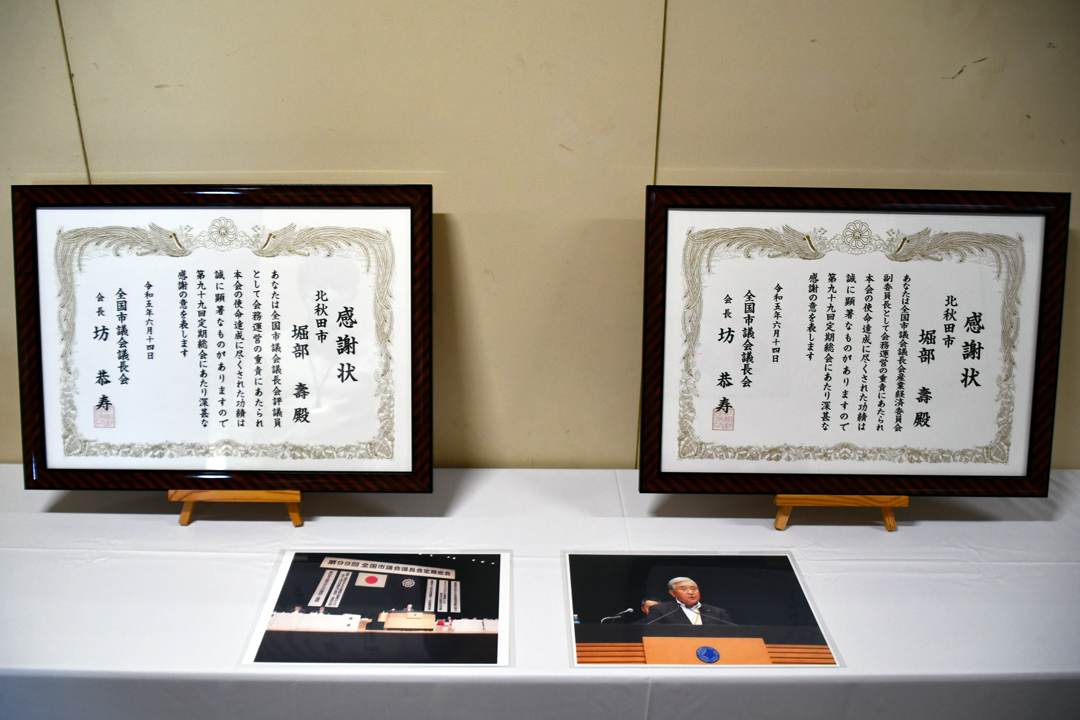 感謝状
北秋田市
堀部　壽殿
あなたは全国市議会議長会評議員
として会務運営の重責にあたられ
本会の使命達成に尽くされた功績は
誠に顕著なものがありますので
第九十九回定期総会にあたり深甚な
感謝の意を表します
令和五年六月十四日
全国市議会議長会
会長　坊　恭寿
感謝状
北秋田市
堀部　壽殿
あなたは全国市議会議長会産業経済委員会
副委員長として会務運営の重責にあたられ
本会の使命達成に尽くされた功績は
誠に顕著なものがありますので
第九十九回定期総会にあたり深甚な
感謝の意を表します
令和五年六月十四日
全国市議会議長会
会長　坊　恭寿
第99回 全国市議会議長会定期総会